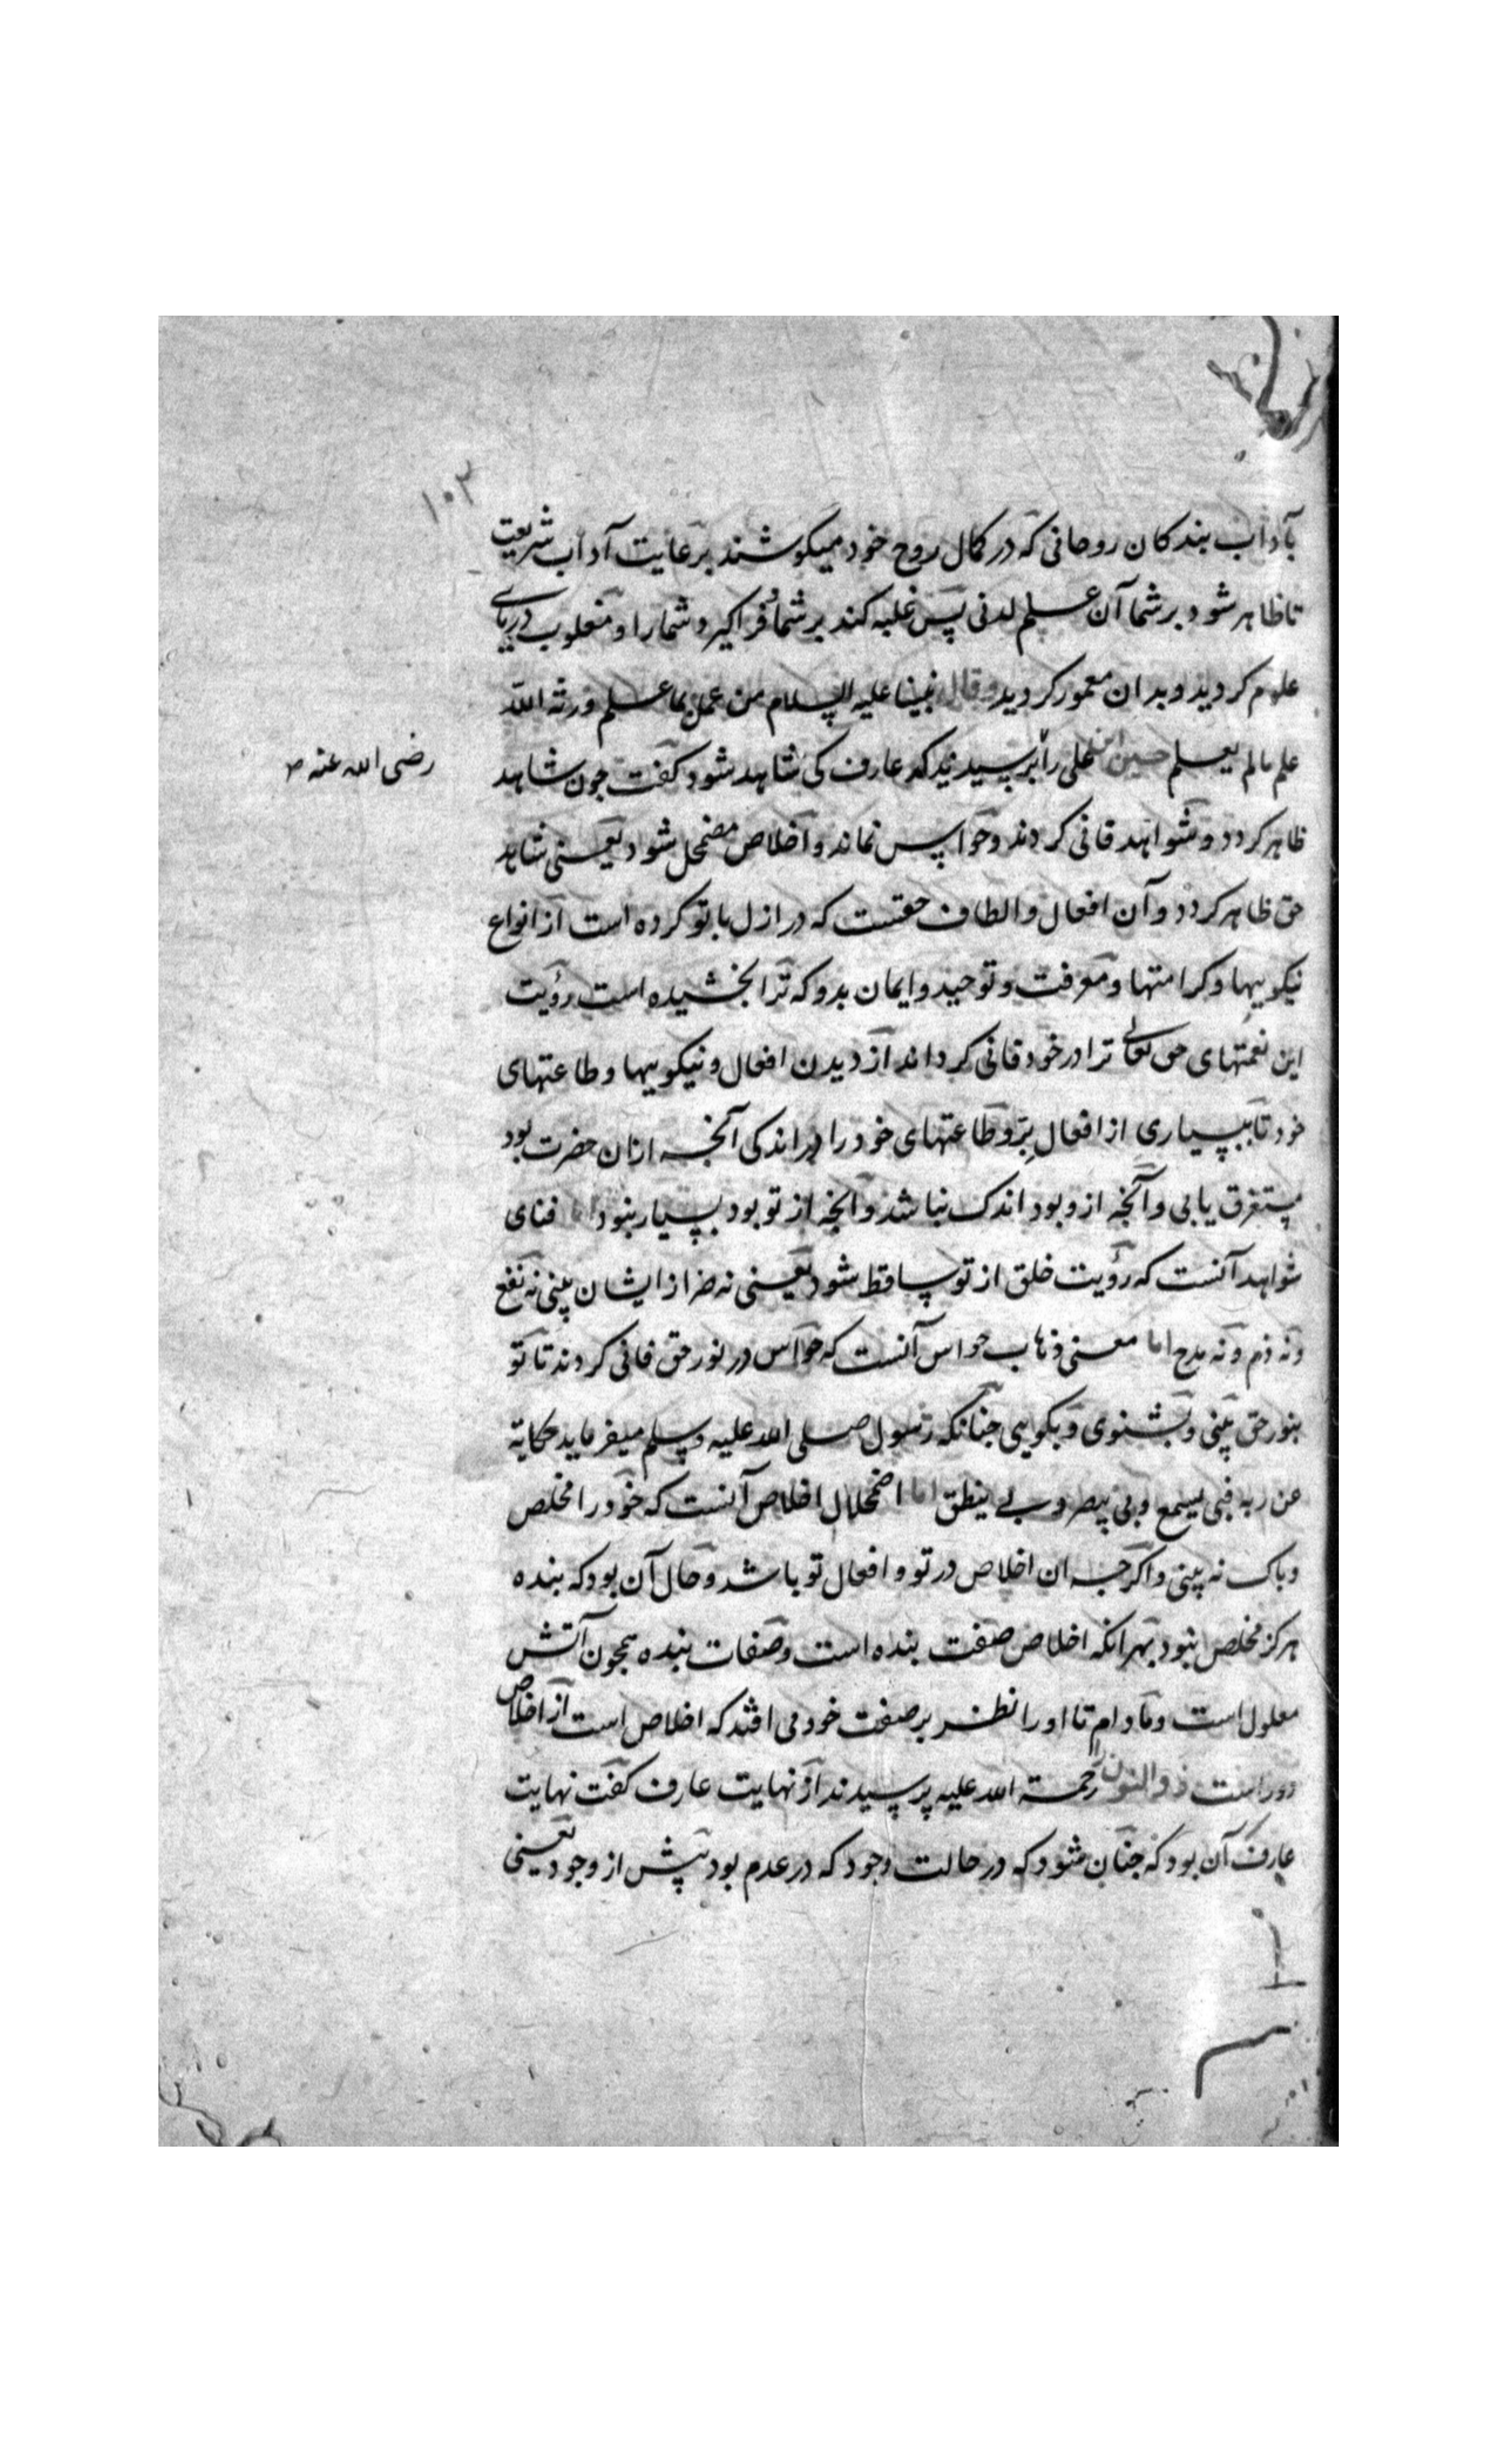 ۱۰۳
بآداب بندکان روحانی که در کمال روح خود میکوشند برعایت آداب شریعت
تا ظاهر شود بر شما آن علم لدنی پس غلبه کند بر شما و فراکیرد شما را و مغلوب دریای
علوم کردید و بدان معمور کردید و قال نبینا علیه السلام من عمل بما علم ورثه الله
علم مالم یعلم حسین ابن علی را پرسیدند که عارف کی شاهد شود کفت جون شاهد
رضی الله عنه
ظاهر کردد و شواهد فانی کردند و حواس نماند و اخلاص مضمحل شود یعنی شاهد
حق ظاهر کردد و آن افعال و الطاف حقست که در ازل با تو کرده است از انواع
نیکوییها و کرامتها و معرفت و توحید و ایمان بدو که ترا بخشیده است رؤیت
این نعمتهای حق تعالی ترا در خود فانی کرداند از دیدن افعال و نیکوییها و طاعتهای
خود تا بسیاری از افعال بر و طاعتهای خود را در اندکی آنجه ازان حضرت بود
مستغرق یابی و آنجه ازو بود اندک نباشد و آنجه از تو بود بسیار نبود اما فنای
شواهد آنست که رؤیت خلق از تو ساقط شود یعنی نه ضر از ایشان بینی نه نفع
و نه ذم و نه مدح اما معنی ذهاب حواس آنست که حواس در نور حق فانی کردند تا تو
بنور حق بینی و بشنوی و بکویی جنانکه رسول صلی الله علیه وسلم میفرماید حکایة
عن ربه فبی یسمع وبی یبصر وبی ینطق اما اضمحلال اخلاص آنست که خود را مخلص
و باک نه بینی و اکرجه ان اخلاص در تو و افعال تو باشد و حال آن بود که بنده
هرکز مخلص نبود بهرانکه اخلاص صفت بنده است و صفات بنده همجون آتش
معلول است و مادام تا او را نظر بر صفت خود می افتد که اخلاص است از اخلاص
دور است ذوالنون را رحمة الله علیه پرسیدند از نهایت عارف کفت نهایت
عارف آن بود که جنان شود که در حالت وجود که در عدم بود پیش از وجود یعنی